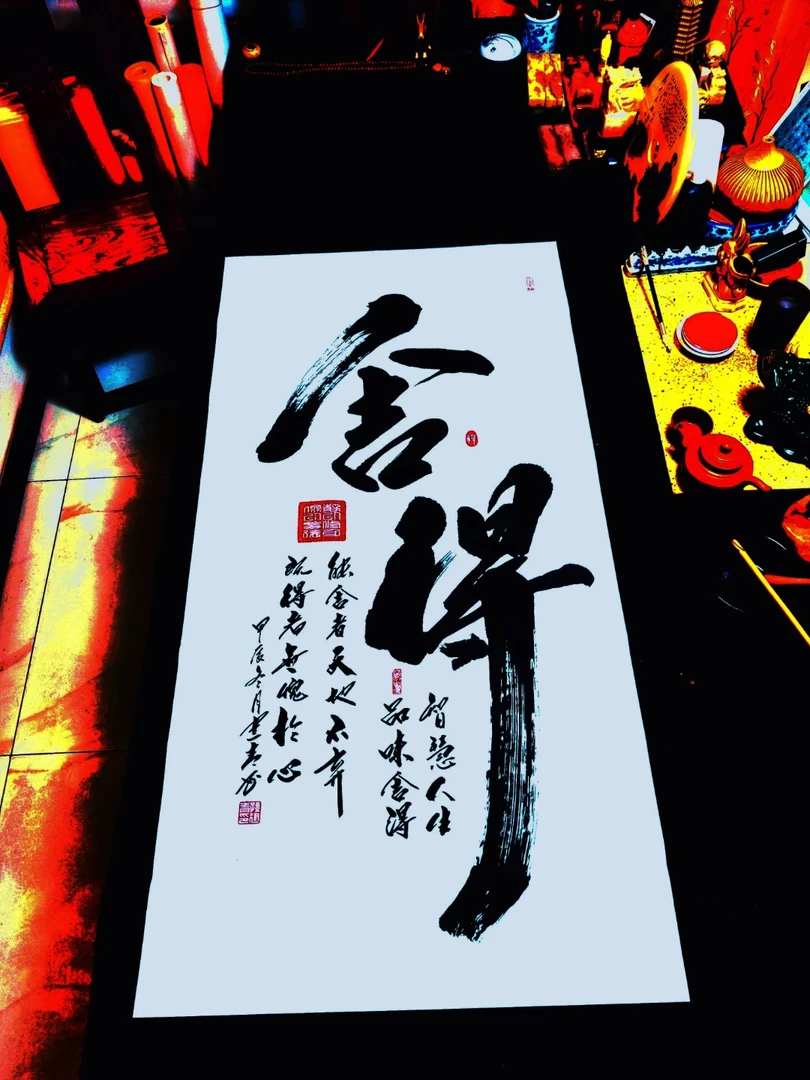 舍得
智慧人生
品味舍得
能舍者天地不弃
玩得者无愧於心
甲辰冬月建青书